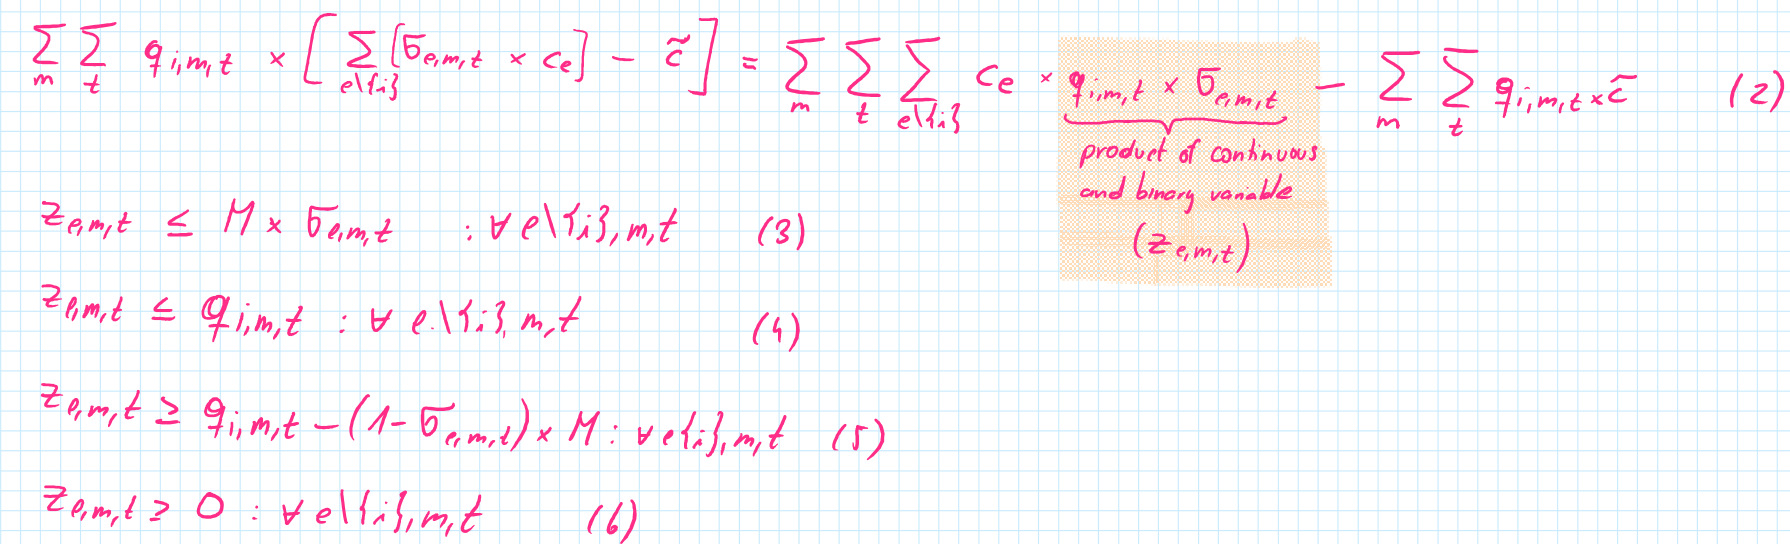 ∑_m ∑_t q_{i,m,t} × [ ∑_{e\{i}} [σ_{e,m,t} × c_e] − c̃ ] = ∑_m ∑_t ∑_{e\{i}} c_e × q_{i,m,t} × σ_{e,m,t} − ∑_m ∑_t q_{i,m,t} × c̃ (2)
product of continuous
and binary variable
(z_{e,m,t})
z_{e,m,t} ≤ M × σ_{e,m,t} : ∀ e\{i}, m, t (3)
z_{e,m,t} ≤ q_{i,m,t} : ∀ e\{i}, m, t (4)
z_{e,m,t} ≥ q_{i,m,t} − (1 − σ_{e,m,t}) × M : ∀ e{i}, m, t (5)
z_{e,m,t} ≥ 0 : ∀ e\{i}, m, t (6)